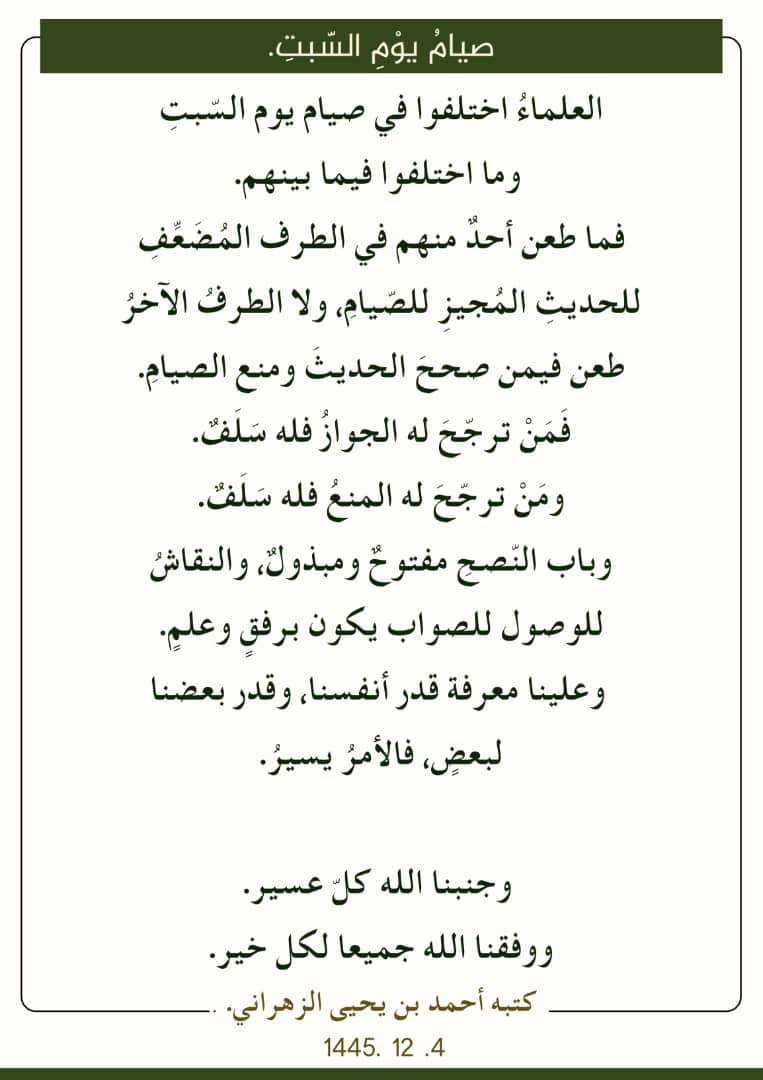 صيامُ يوْمِ السّبتِ.
العلماءُ اختلفوا في صيام يوم السّبتِ
وما اختلفوا فيما بينهم.
فما طعن أحدٌ منهم في الطرف المُضَعِّفِ
للحديثِ المُجيزِ للصّيامِ، ولا الطرفُ الآخرُ
طعن فيمن صححَ الحديثَ ومنع الصيامِ.
فَمَنْ ترجّحَ له الجوازُ فله سَلَفٌ.
ومَنْ ترجّحَ له المنعُ فله سَلَفٌ.
وباب النّصحِ مفتوحٌ ومبذولٌ، والنقاشُ
للوصول للصواب يكون برفقٍ وعلمٍ.
وعلينا معرفة قدر أنفسنا، وقدر بعضنا
لبعضٍ، فالأمرُ يسيرُ.
وجنبنا الله كلّ عسير.
ووفقنا الله جميعا لكل خير.
كتبه أحمد بن يحيى الزهراني. .
4. 12 .1445